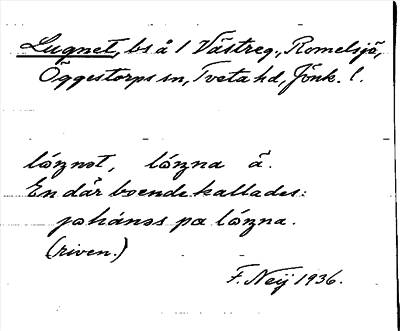 Lugnet, bs å 1 Västreg., Romelsjö,
Öggestorps sn, Tveta hd, Jönk. l.
lóznət, lózna å̈.
En där boende kallades:
johánəs pa lózna.
(riven.)
F. Neij 1936.